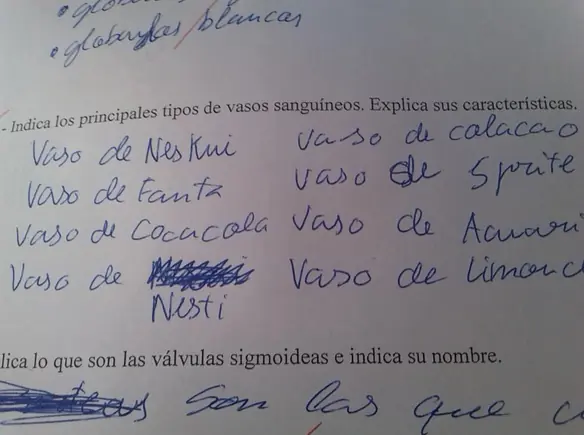 • globulos
• globulos blancas
- Indica los principales tipos de vasos sanguíneos. Explica sus características.
Vaso de Neskui vaso de colacao
Vaso de Fanta vaso de Sprite
Vaso de Cocacola Vaso de Acuari
Vaso de Vaso de limonc
Nesti
lica lo que son las válvulas sigmoideas e indica su nombre.
son las que